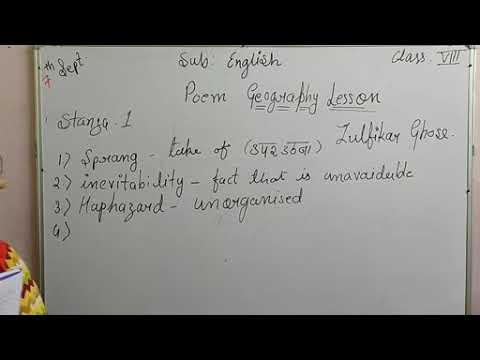 7th Sept Sub: English Class: VIII
Poem Geography Lesson
Stanza. 1 Zulfikar Ghose.
1) Sprang - take of (उपर उठना)
2) inevitability - fact that is unavaidable
3) Haphazard - unorganised
4)